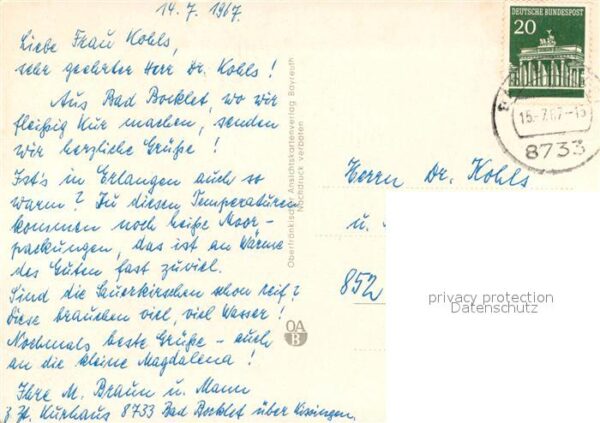 14.7.1967.
Liebe Frau Kohls,
sehr geehrter Herr Dr. Kohls!
Aus Bad Bocklet, wo wir
fleißig Kur machen, senden
wir herzliche Grüße!
Ist's in Erlangen auch so
warm? Zu diesen Temperaturen
kommen noch heiße Moor-
packungen, das ist an Wärme
des Guten fast zuviel.
Sind die Sauerkirschen schon reif?
Diese brauchen viel, viel Wasser!
Nochmals beste Grüße - auch
an die kleine Magdalena!
Ihre M. Braun u. Mann
z. Zt. Kurhaus 8733 Bad Bocklet über Kissingen.
Oberfränkischer Ansichtskartenverlag Bayreuth
Nachdruck verboten
OA
B
DEUTSCHE BUNDESPOST
20
15.-7.67-15
8733
Herrn Dr. Kohls
u.
852
privacy protection
Datenschutz